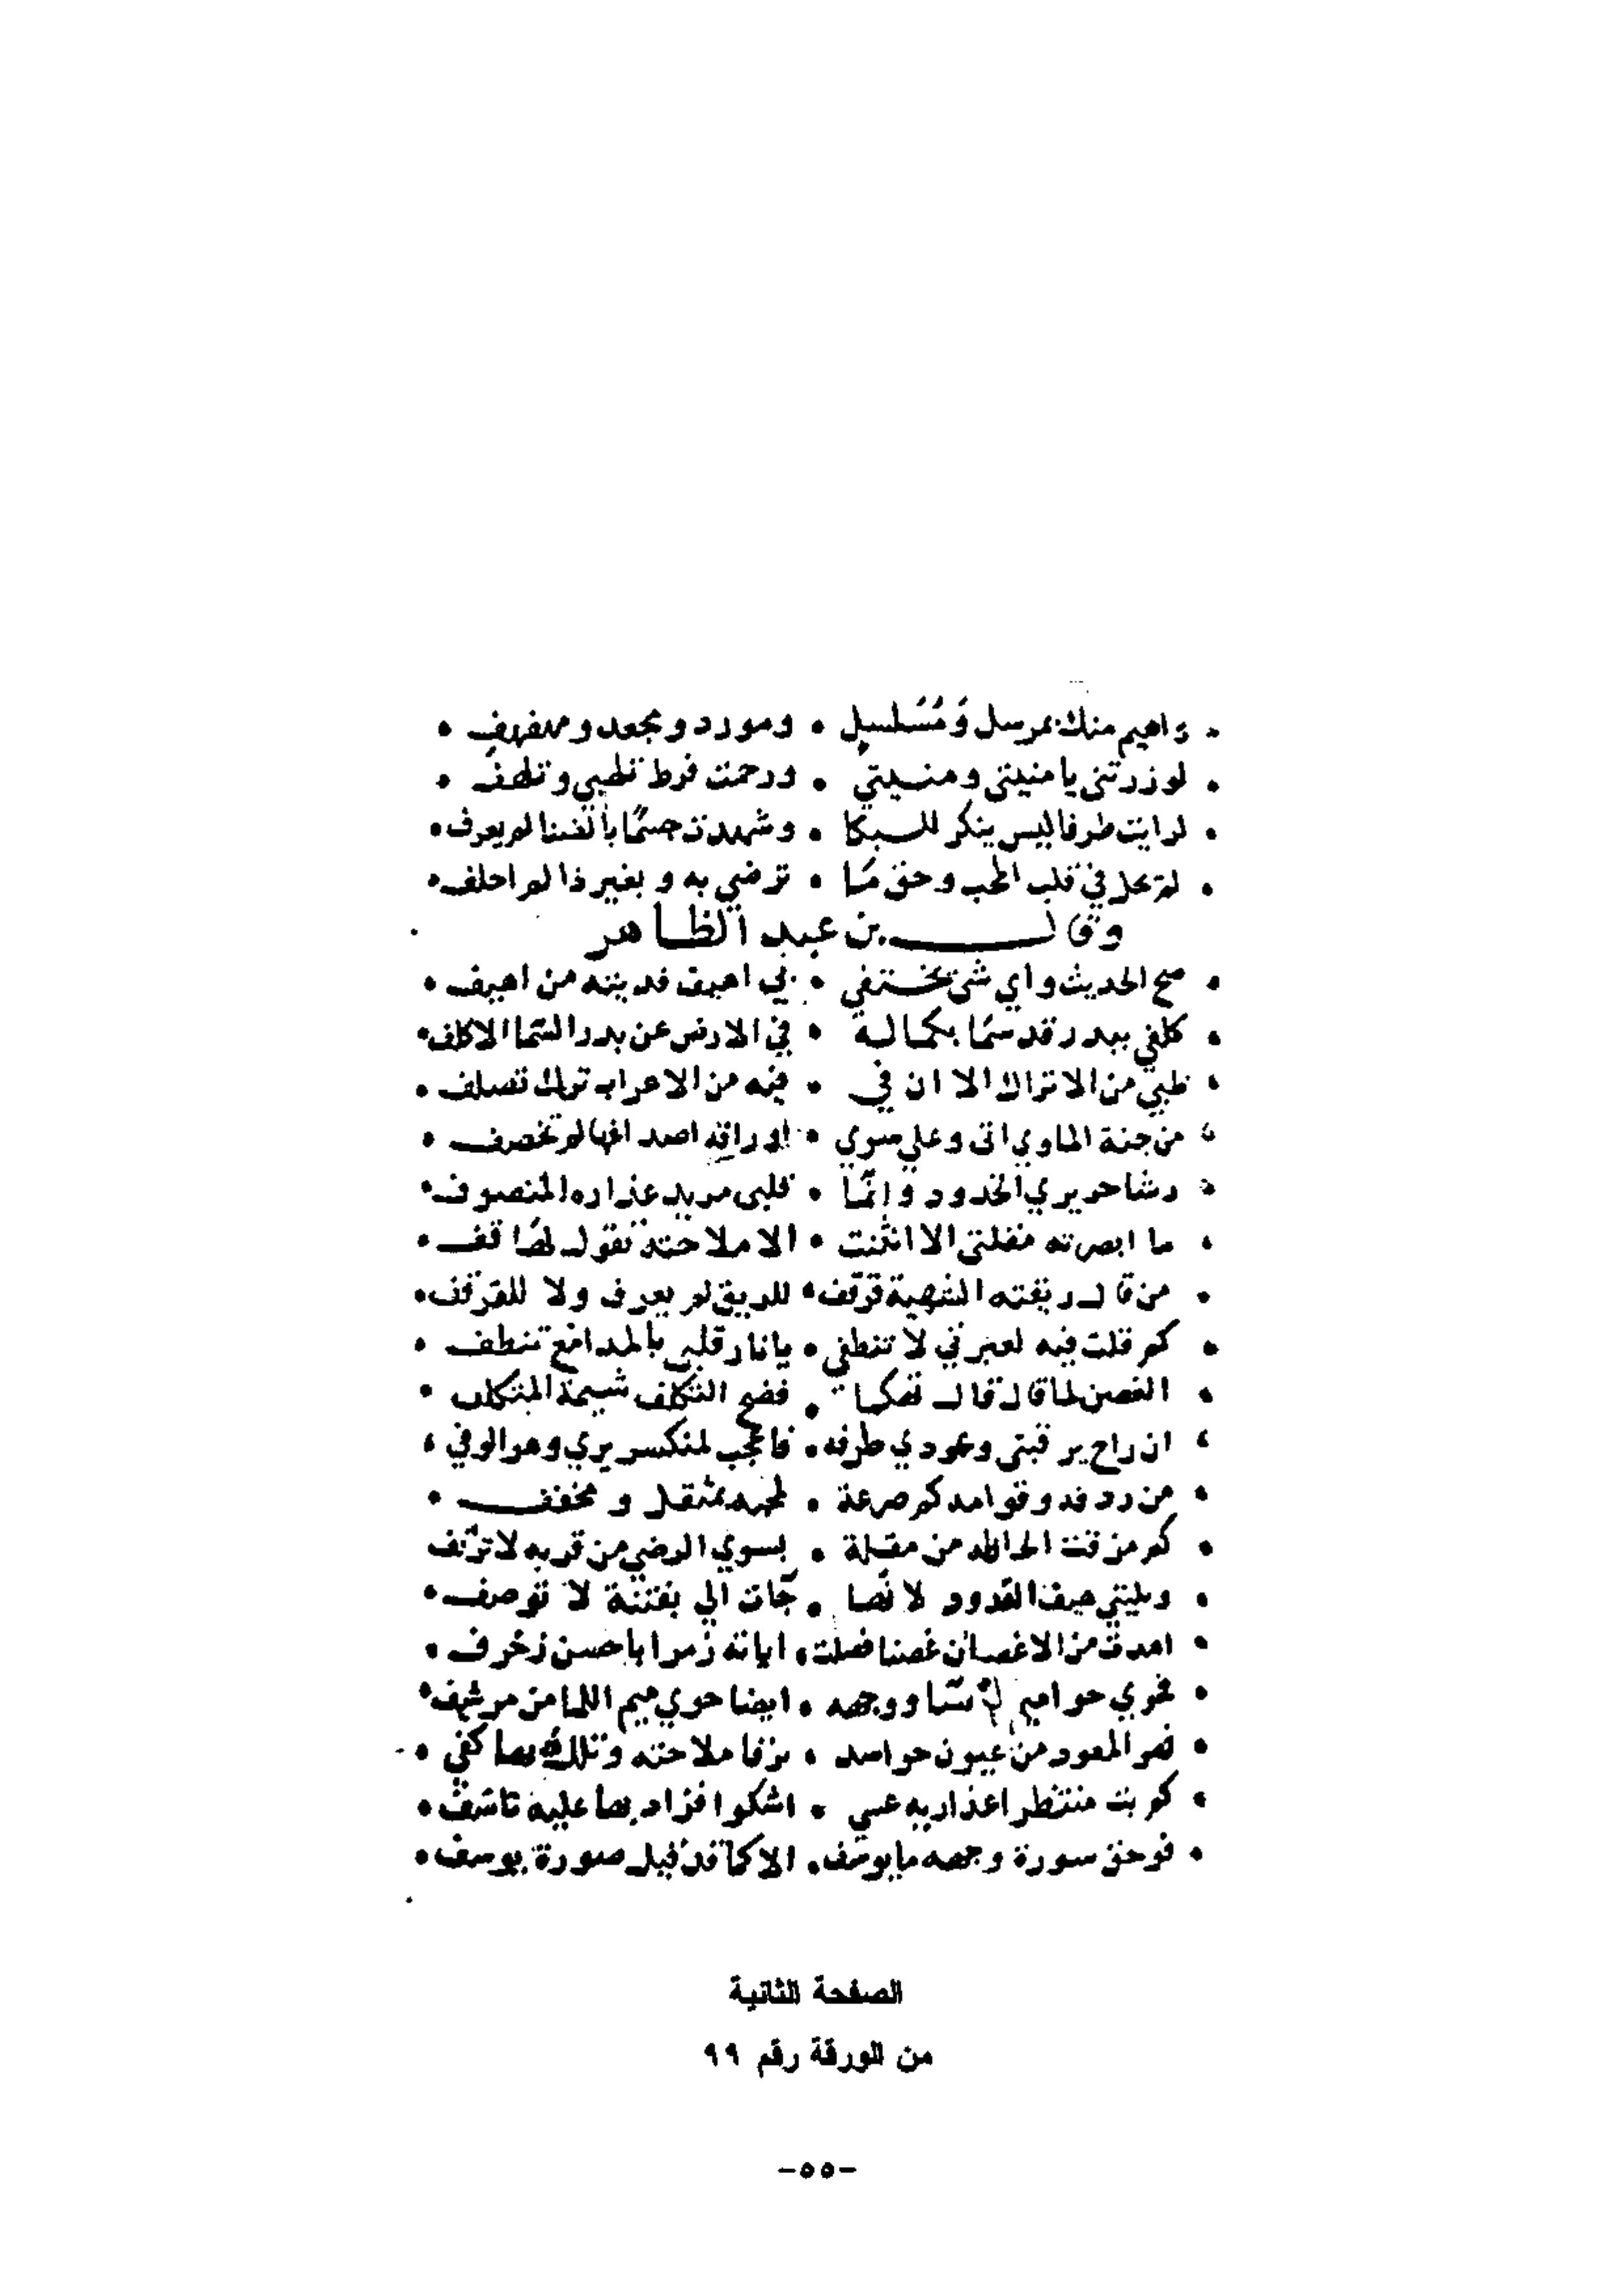 واهيم منك بمرسل وَمُسَلسل • ومورد ومجعد ومهفهف •
لو زرتني يا منيتي ومنيتي • ورحمت فرط تلهبي وتلهف •
لرايت طرفا ليس ينكر للبكا • وشهدت جسمًا بالضنا لم يعرف •
لم تحل في قلب المحب وحق مَا • ترضي به وبغير ذا لم احلف •
وقال بن عبد الظاهر
صح الحديث واي شئ يختفي • بي اهيف فديته من اهيف •
كلفي ببدر قد سمَا بكماله • في الارض عن بدر السَما الاكلف •
ظبي من الاتراك الا ان في • فيه من الاعراب ترك تصلف •
من جنة الماوي اتى وعلي سوي • اوراقه اصداغها لم تخصف •
رشا حريري الخدود وانمَا • قلبى مريد عذاره المتصوف •
ما ابصرته مقلتي الا انثنت • الا ملاحته تقول لها قف •
من قال ريقته الشهية قرقف • للريق لم يعرف ولا للقرقف •
كم قلت فيه لعبرتي لا تنطفي • يا نار قلبى بالمدامع تنطف •
الغصن لما قال قال تهكما • فضح التكلف شيمة المتكلف •
ان راح يرقبني وعودي طرفه • فاعجب لمنكسر يري وهو الوفي •
من ردفه وقوامه كم صرعة • لمحبه بمثقل ومخفف •
كم مزقت الحاظه من مقلة • بسوي الرضي من قربه لا ترتف
وبليتي هيف القدود لانها • جَات الي بفتنة لا توصف •
اهدت من الاغصان غصنا فصلت • اياته زمرا باحسن زخرف •
يحوي حواميم ووجهه • ايضا حوي ميم اللما من مرشف •
فهو المعود من عيون حواسد • برفا ملاحته وتلك بها كفي •
كم بت منتظر اعذاريه عسي • اشكوا فزاد بها عليه تاسف •
فوحق سورة وجهه ما يوسف • الا كما قد قيل صورة يوسف •
الصفحة الثانية
من الورقة رقم ٩٩
-٥٥-